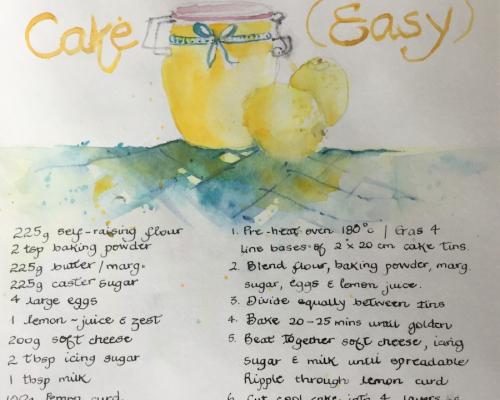 Cake
(Easy)
225g self-raising flour
2 tsp baking powder
225g butter/marg.
225g caster sugar
4 large eggs
1 lemon - juice & zest
200g soft cheese
2 tbsp icing sugar
1 tbsp milk
100g lemon curd
1. Pre-heat oven 180°c | Gas 4
Line bases of 2 x 20 cm cake tins.
2. Blend flour, baking powder, marg.
sugar, eggs & lemon juice.
3. Divide equally between tins
4. Bake 20-25 mins until golden
5. Beat together soft cheese, icing
sugar & milk until spreadable
Ripple through lemon curd
6. Cut cool cake into 4 layers